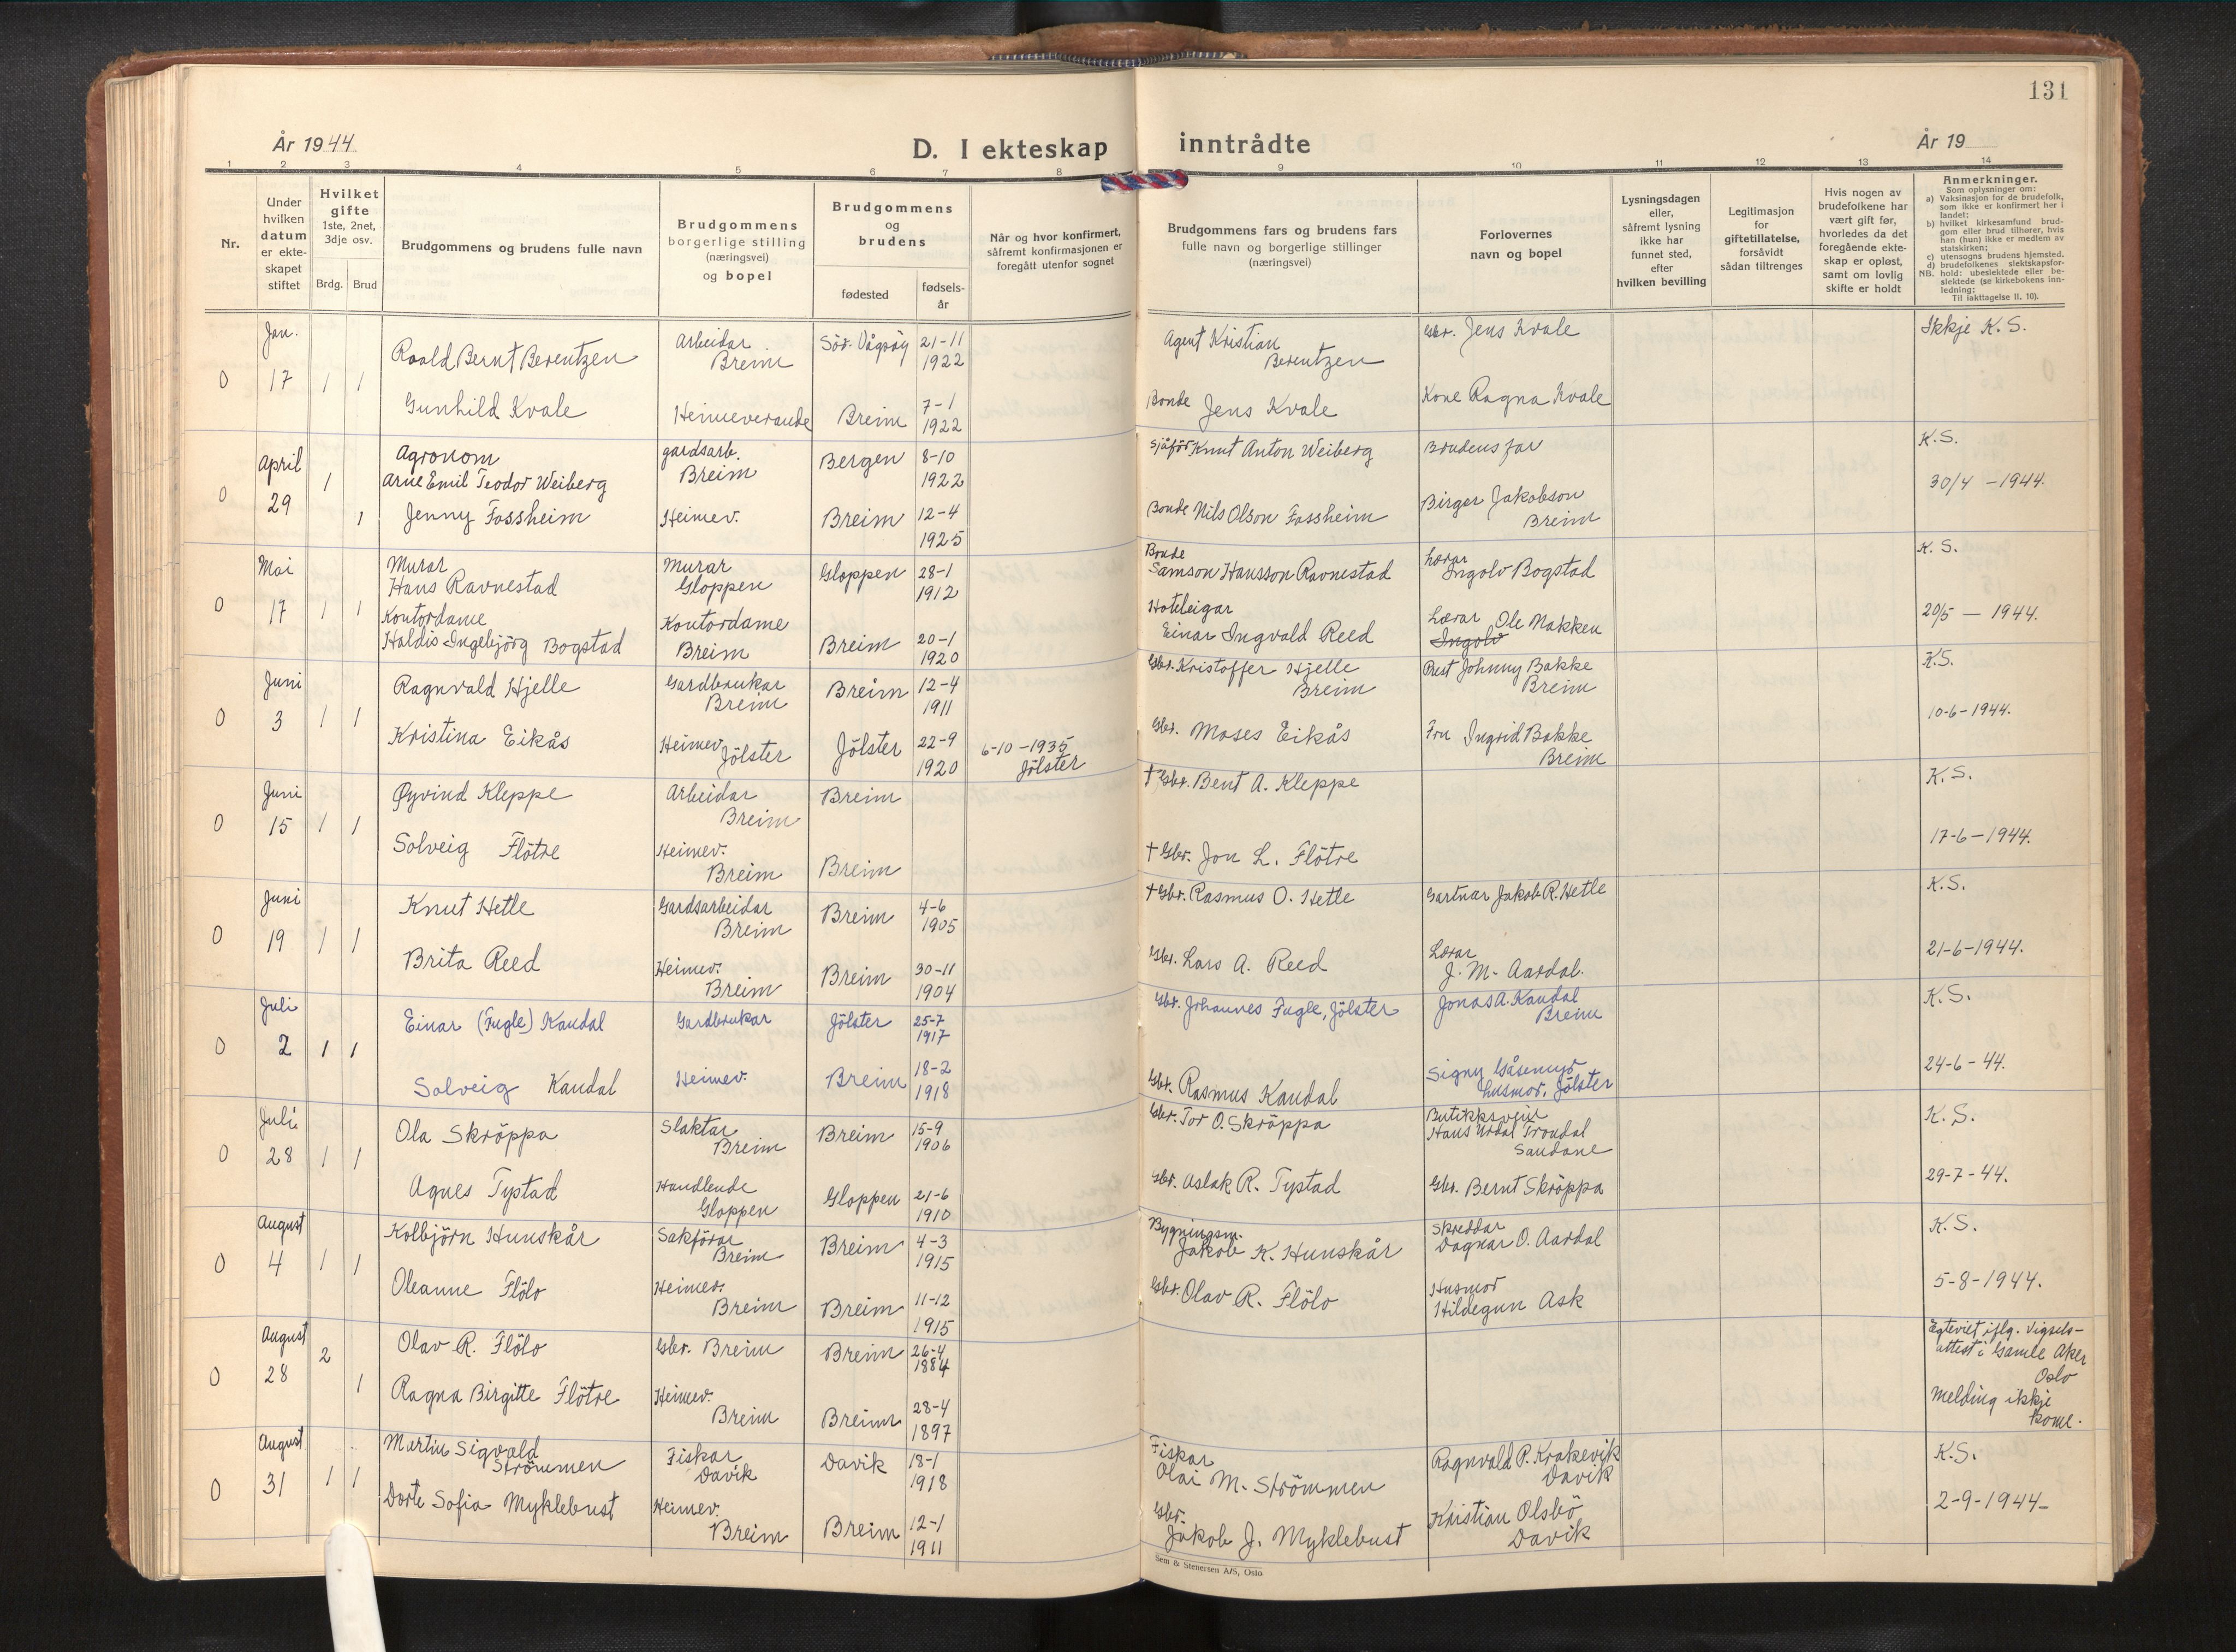 131
År 1944
D. I ekteskap inntrådte
År 19
1 2 3 4 5 6 7 8 9 10 11 12 13 14
Nr.
Under
hvilken
datum
er ekte-
skapet
stiftet
Hvilket
gifte
1ste, 2net,
3dje osv.
Brdg. Brud
Brudgommens og brudens fulle navn
Brudgommens
borgerlige stilling
(næringsvei)
og bopel
Brudgommens
og
brudens
fødested
fødsels-
år
Når og hvor konfirmert,
såfremt konfirmasjonen er
foregått utenfor sognet
Brudgommens fars og brudens fars
fulle navn og borgerlige stillinger
(næringsvei)
Forlovernes
navn og bopel
Lysningsdagen
eller,
såfremt lysning
ikke har
funnet sted,
efter
hvilken bevilling
Legitimasjon
for
giftetillatelse,
forsåvidt
sådan tiltrenges
Hvis nogen av
brudefolkene har
vært gift før,
hvorledes da det
foregående ekte-
skap er opløst,
samt om lovlig
skifte er holdt
Anmerkninger.
Som oplysninger om:
a) Vaksinasjon for de brudefolk,
som ikke er konfirmert her i
landet;
b) hvilket kirkesamfund brud-
gom eller brud tilhører, hvis
han (hun) ikke er medlem av
statskirken;
c) utensogns brudens hjemsted.
d) brudefolkenes slektskapsfor-
NB. hold: ubeslektede eller be-
slektede (se kirkebokens inn-
ledning;
Til iakttagelse II. 10).
Jan.
0 17 1 1
Roald Bernt Berentzen
Arbeidar
Breim
Sör-Vågsöy 21-11
1922
Agent Kristian
Berentzen
Gbr. Jens Kvale
Ikkje K.S.
Gunhild Kvale
Heimeverande
Breim 7-1
1922
Bonde Jens Kvale
Kone Ragna Kvale
April
0 29 1 1
Agronom
Arne Emil Teodor Weiberg
gardsarb.
Breim
Bergen 8-10
1922
Sjåför Knut Anton Weiberg
Brudens far
K.S.
30/4 - 1944.
Jenny Fossheim
Heimev.
Breim 12-4
1925
Bonde Nils Olson Fossheim
Birger Jakobson
Breim
Mai
0 17 1 1
Murar
Hans Ravnestad
Murar
Gloppen
Gloppen 28-1
1912
Bonde
Samson Hansson Ravnestad
Lærar
Ingolv Bogstad
K.S.
Kontordame
Haldis Ingebjörg Bogstad
Kontordame
Breim
Breim 20-1
1920
Hoteleigar
Einar Ingvald Reed
Lærar Ole Makken
Ingolv
20/5 - 1944.
Juni
0 3 1 1
Ragnvald Hjelle
Gardbrukar
Breim
Breim 12-4
1911
Gbr. Kristoffer Hjelle
Breim
Prest Johnny Bakke
Breim
K.S.
10-6-1944.
Kristina Eikås
Heimev.
Jölster
Jölster 22-9
1920
6-10-1935
Jölster
Gbr. Moses Eikås
Fru Ingrid Bakke
Breim
Juni
0 15 1 1
Øyvind Kleppe
Arbeidar
Breim
Breim
† Gbr. Bent A. Kleppe
K.S.
17-6-1944.
Solveig Flötre
Heimev.
Breim
Breim
† Gbr. Jon L. Flötre
Juni
0 19 1 1
Knut Hetle
Gardsarbeidar
Breim
Breim 4-6
1905
† Gbr. Rasmus O. Hetle
Gartnar Jakob R. Hetle
K.S.
21-6-1944.
Brita Reed
Heimev.
Breim
Breim 30-11
1904
Gbr. Lars A. Reed
Lærar
J. M. Aardal.
Juli
0 2 1 1
Einar (Fugle) Kandal
Gardbrukar
Jölster 25-7
1917
Gbr. Johannes Fugle, Jölster
Jonas A. Kandal
Breim
K.S.
24-6-44.
Solveig Kandal
Heimev.
Breim 18-2
1918
Gbr. Rasmus Kandal
Signy
husmor, Jölster
Juli
0 28 1 1
Ola Skröppa
Slaktar
Breim
Breim 15-9
1906
Gbr. Tor O. Skröppa
Hans Urdal Trondal
Sandane
K.S.
29-7-44.
Agnes Tystad
Handlende
Gloppen
Gloppen 21-6
1910
Gbr. Aslak R. Tystad
Gbr. Bernt Skröppa
August
0 4 1 1
Kolbjörn Hunskår
Sakförar
Breim
Breim 4-3
1915
Bygningsm.
Jakob K. Hunskår
Skreddar
Dagnar O. Aardal
K.S.
5-8-1944.
Oleanne Flölo
Heimev.
Breim
Breim 11-12
1915
Gbr. Olav R. Flölo
Husmor
Hildegun Ask
August
0 28 2 1
Olav R. Flölo
Gbr. Breim
Breim 26-4
1884
Egteviet iflg. vigsels-
attest i Gamle Aker
Oslo
Melding ikkje
kome.
Ragna Birgitte Flötre
Heimev.
Breim
Breim 28-4
1897
August
0 31 1 1
Martin Sigvald
Strömmen
Fiskar
Davik
Davik 18-1
1918
Fiskar
Olai M. Strömmen
Ragnvald P. Krakevik
Davik
K.S.
2-9-1944-
Dorte Sofia Myklebust
Heimev.
Breim
Breim 12-1
1911
Gbr.
Jakob J. Myklebust
Kristian Olsbö
Davik
Sem & Stenersen A/S, Oslo